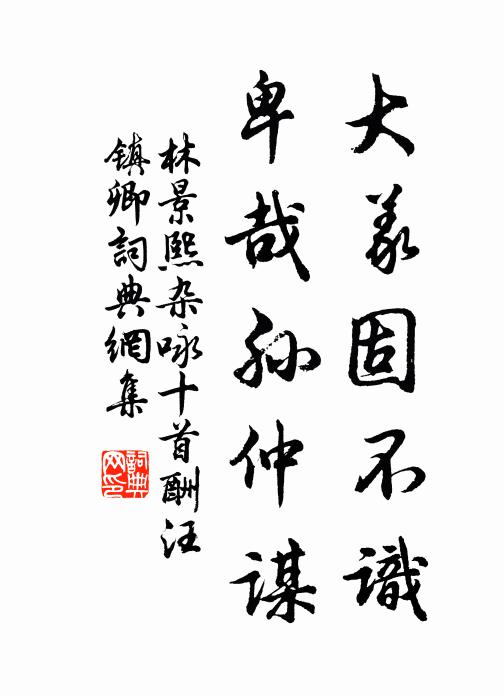 大義固不識
卑哉孫仲謀
林景熙杂咏十首酬汪
鎮卿詞典網集
詞典网印